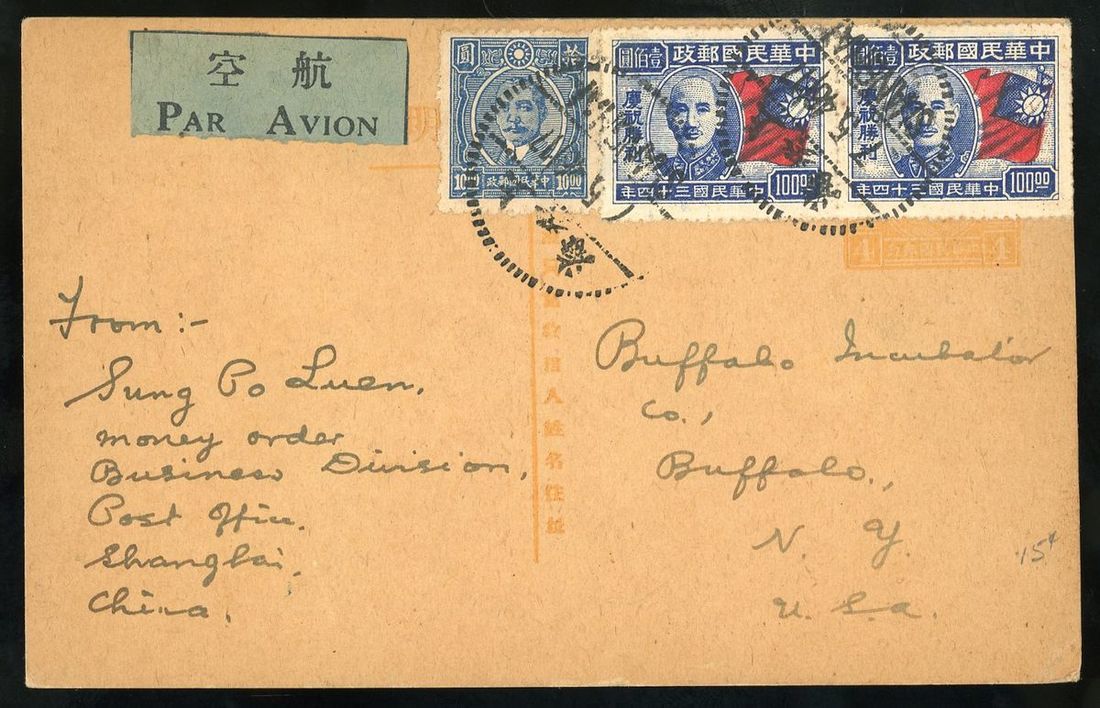 空 航
PAR AVION
圓 拾
10.00 政郵國民華中 10.00
圓佰壹 政郵國民華中
慶祝勝利
年四十三國民華中 100.00
圓佰壹 政郵國民華中
慶祝勝利
年四十三國民華中 100.00
1 1
From:-
Sung Po Luen,
money order
Business Division,
Post Office.
Shanghai.
China.
Buffalo Incubator
Co.,
Buffalo.,
N. Y.
U. S. A.
15¢